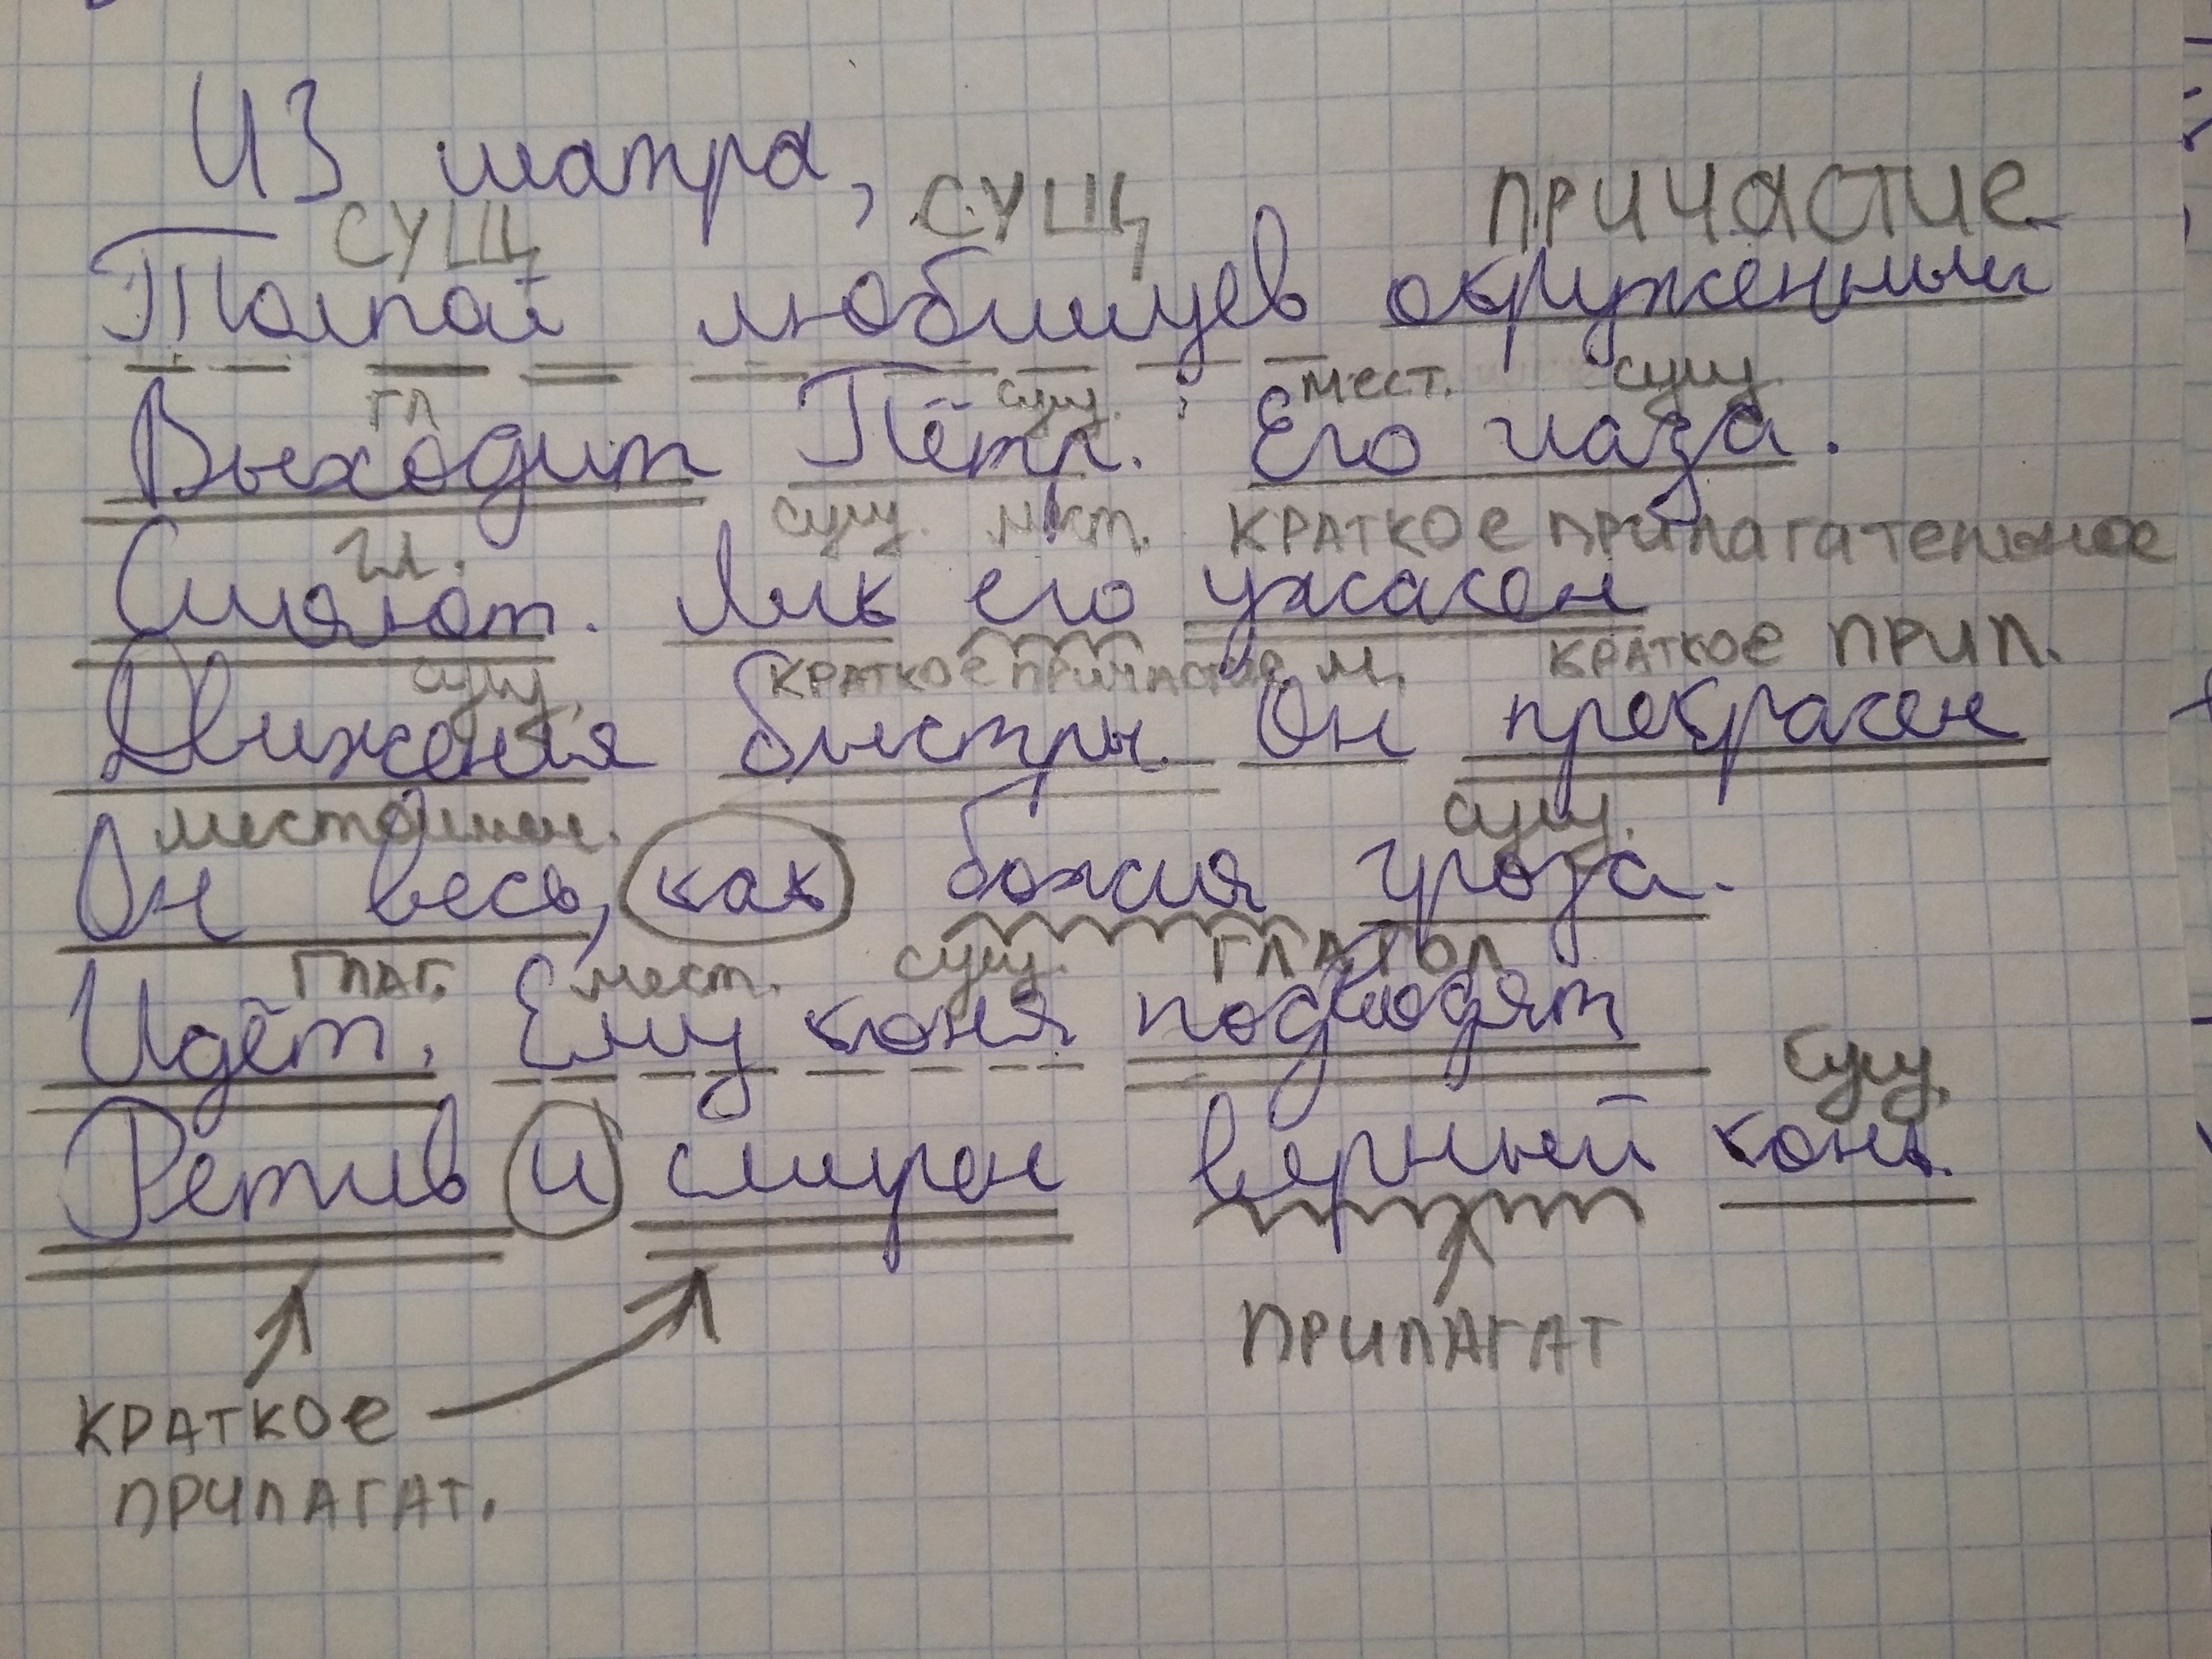 Из шатра,
сущ сущ причастие
Толпой любимцев окруженный
гл сущ. мест. сущ.
Выходит Пётр. Его глаза.
гл. сущ. мест. краткое прилагательное
Сияют. Лик его ужасен
сущ. краткое причастие м. краткое прил.
Движения быстры. Он прекрасен
местоимен. сущ.
Он весь, как божия гроза.
глаг. мест. сущ. глагол
Идёт. Ему коня подводят
сущ.
Ретив и смирен верный конь.
прилагат
краткое
прилагат.